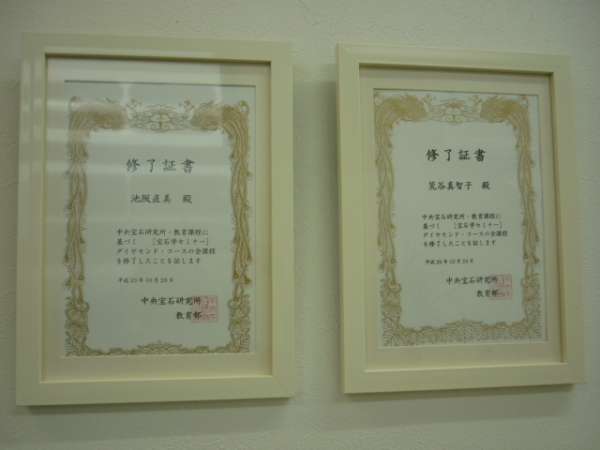 修了証書
池阪直美 殿
中央宝石研究所・教育課程に
基づく [宝石学セミナー]
ダイヤモンド・コースの全課程
を修了したことを証します
平成23年10月26年
中央宝石研究所
教育部
修了証書
荒谷真智子 殿
中央宝石研究所・教育課程に
基づく [宝石学セミナー]
ダイヤモンド・コースの全課程
を修了したことを証します
中央宝石研究所
教育部